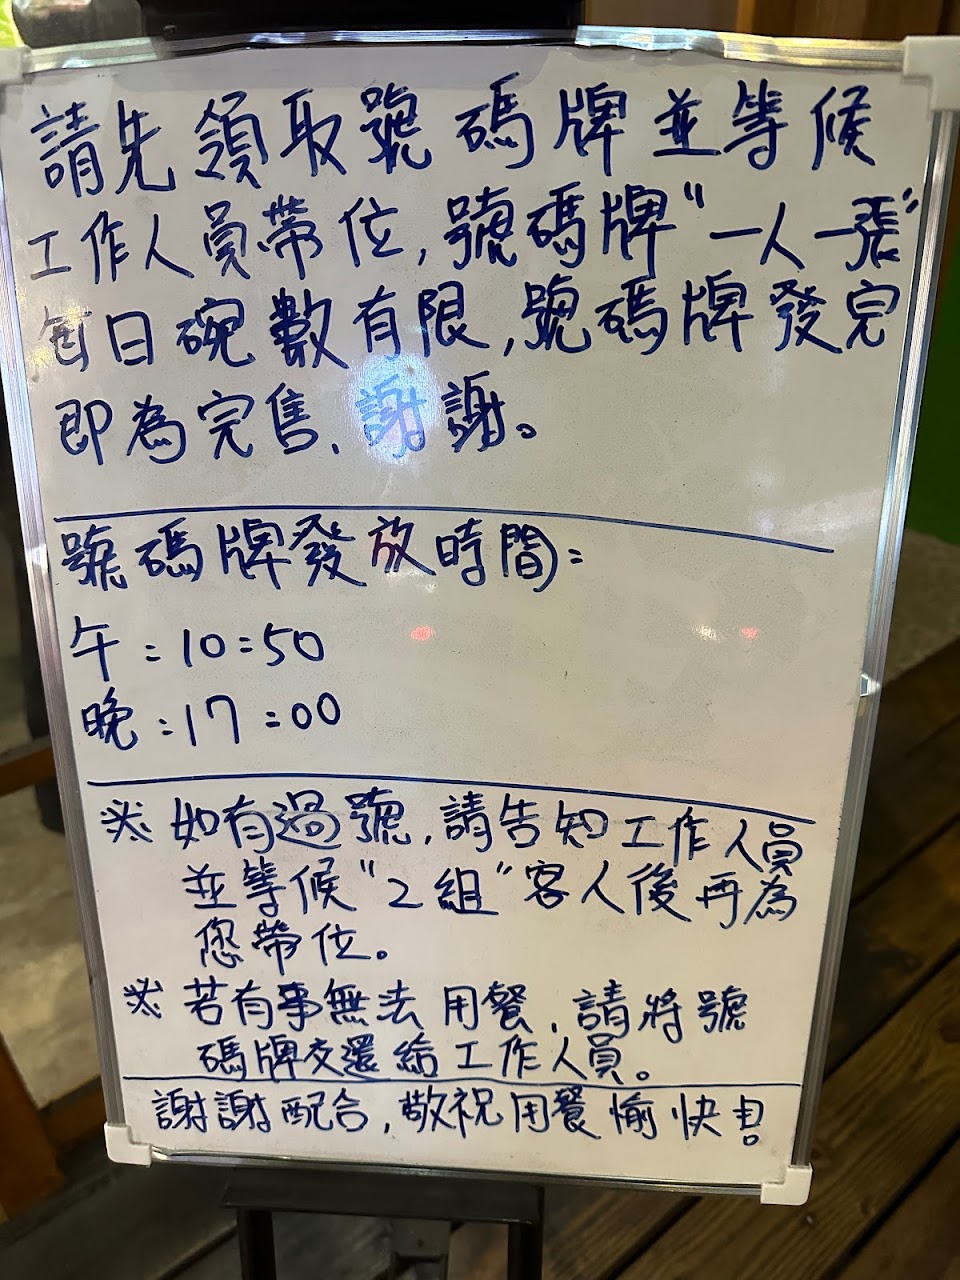 請先領取號碼牌並等候
工作人員帶位,號碼牌"一人一張"
每日碗數有限,號碼牌發完
即為完售、謝謝。
號碼牌發放時間:
午:10:50
晚:17:00
※如有過號,請告知工作人員
並等候"2組"客人後再為
您帶位。
※若有事無法用餐,請將號
碼牌交還給工作人員。
謝謝配合,敬祝用餐愉快!